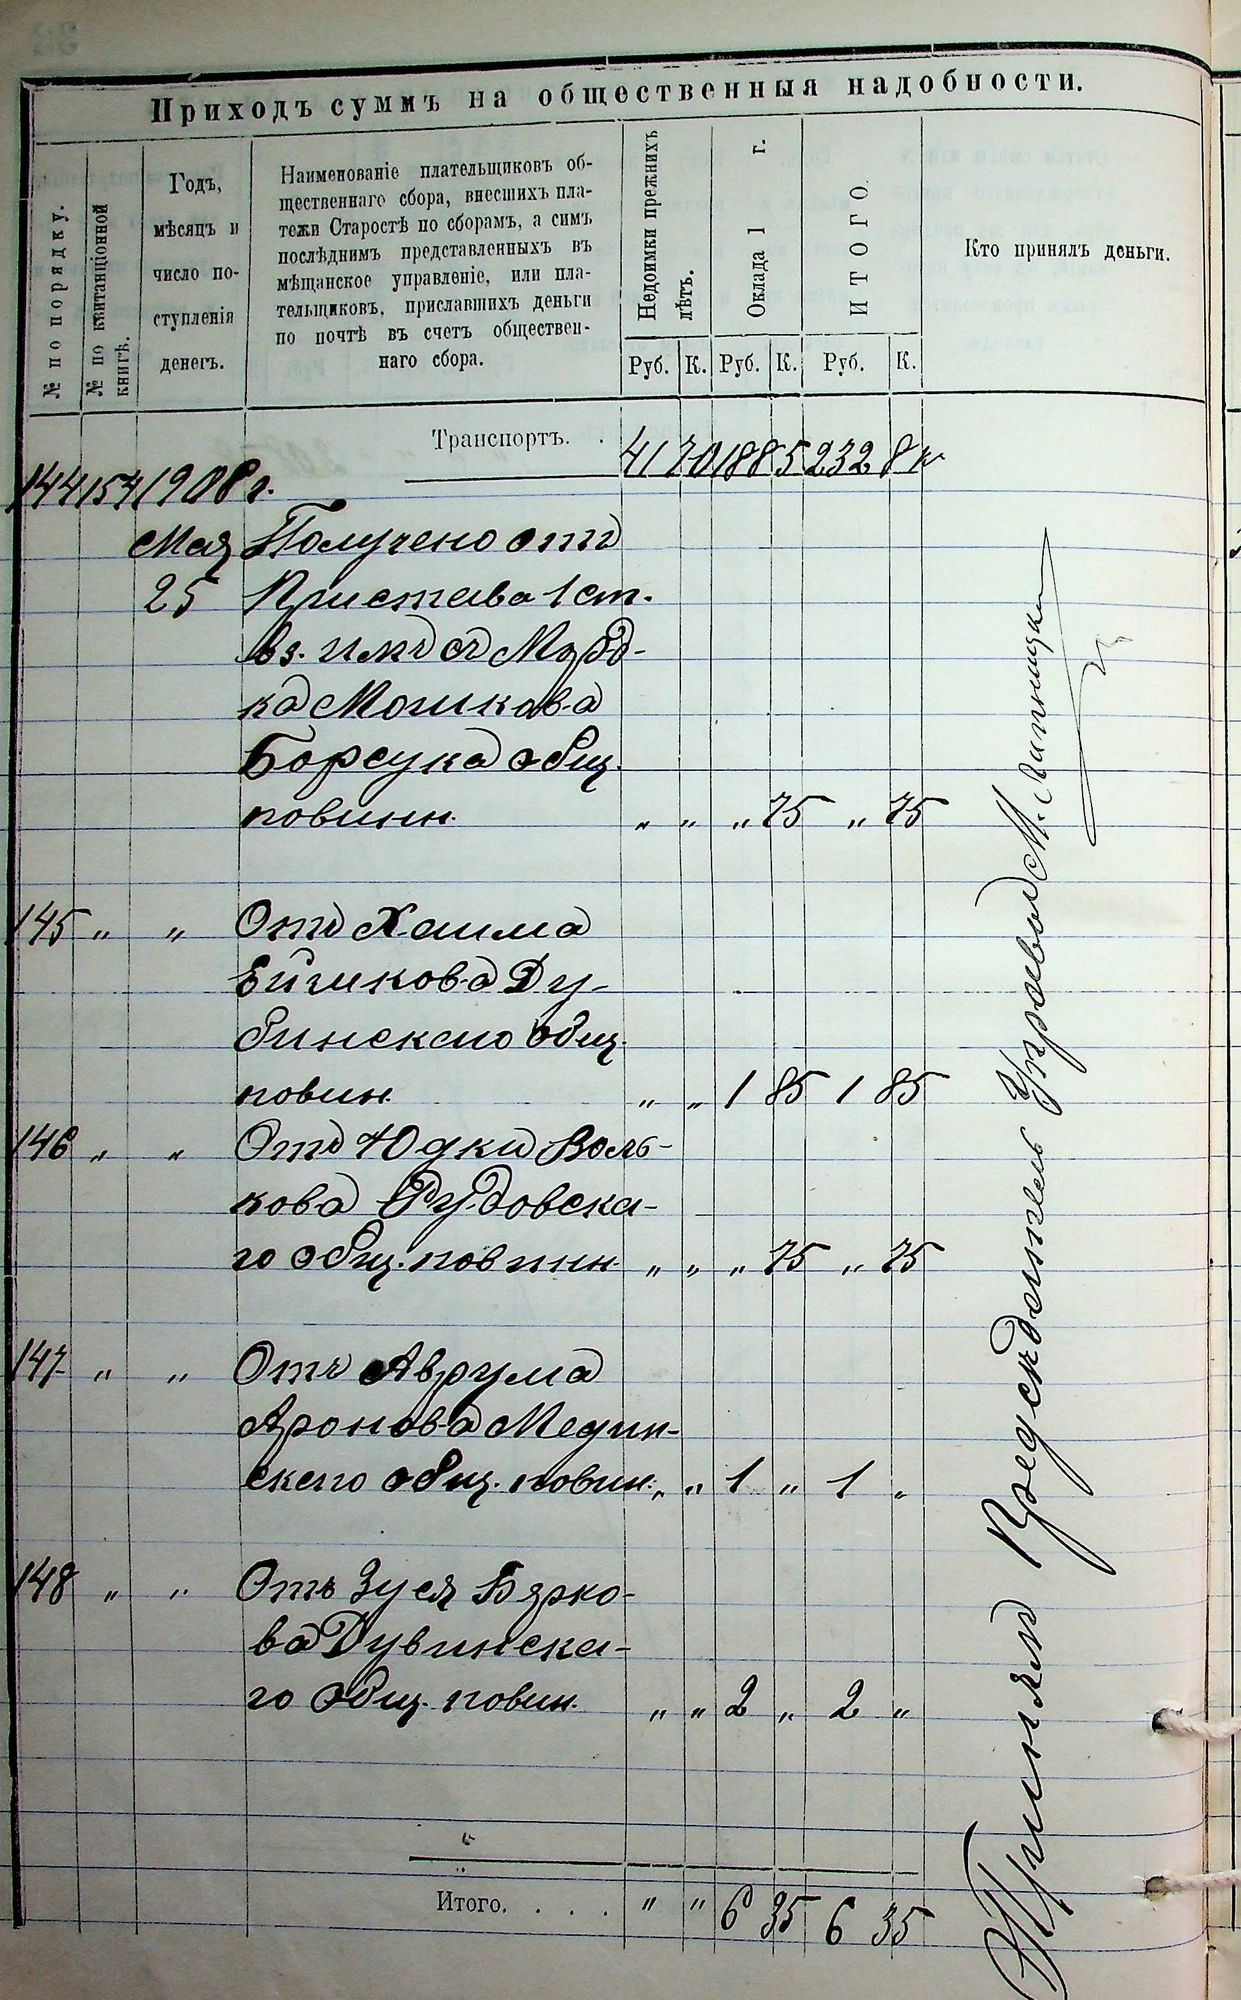 Приходъ суммъ на общественныя надобности.
№ по порядку.
№ по квитанціонной
книгѣ.
Годъ,
мѣсяцъ и
число по-
ступленія
денегъ.
Наименованіе плательщиковъ об-
щественнаго сбора, внесшихъ пла-
тежи Старостѣ по сборамъ, а симъ
послѣднимъ представленныхъ въ
мѣщанское управленіе, или пла-
тельщиковъ, приславшихъ деньги
по почтѣ въ счетъ обществен-
наго сбора.
Недоимки прежнихъ
лѣтъ.
Оклада 1 г.
ИТОГО.
Кто принялъ деньги.
Руб. К. Руб. К. Руб. К.
Транспортъ. . 41 70 188 5 232 8
144 154 1908 г.
Мая Получено отъ
25 Пристава 1 ст.
вз. имъ съ
ка Мошкова
Борсука общ.
повинн. „ „ „ 75 „ 75
145 „ „ Отъ Хаима
Ейшкова Ду-
бинскаго общ.
повин. „ „ 1 85 1 85
146 „ „ Отъ Юдки Воль-
кова Рудовска-
го общ. повинн. „ „ „ 75 „ 75
147 „ „ Отъ Аврума
Аронова Медин-
скаго общ. повин. „ „ 1 „ 1 „
148 „ „ Отъ Зуся Бярко-
ва Дувинска-
го общ. повин. „ „ 2 „ 2 „
Итого. . . . „ „ 6 35 6 35
Принялъ Предсѣдатель Управы М.